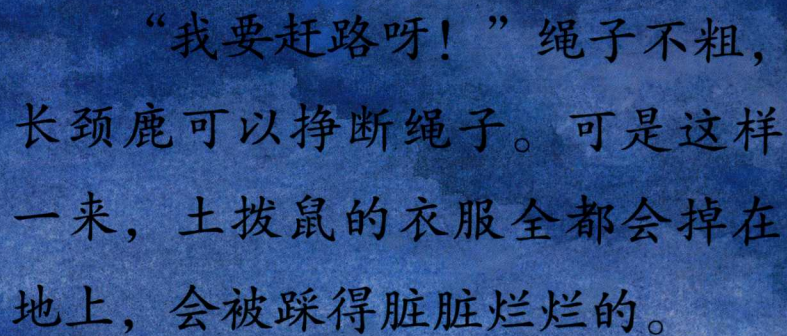 “我要赶路呀！”绳子不粗，
长颈鹿可以挣断绳子。可是这样
一来，土拨鼠的衣服全都会掉在
地上，会被踩得脏脏烂烂的。